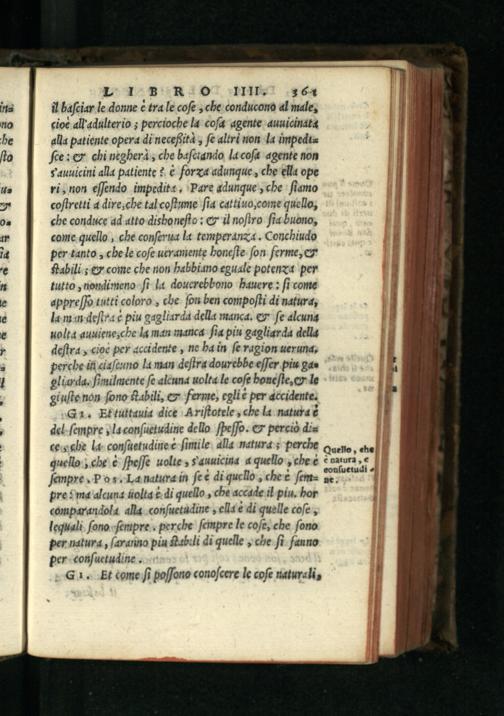 LIBRO IIII. 361
il basciar le donne è tra le cose, che conducono al male,
cioè all'adulterio; percioche la cosa agente auuicinata
alla patiente opera di necessità, se altri non la impedi-
sce: & chi negherà, che basciando la cosa agente non
s'auuicini alla patiente? è forza adunque, che ella ope
ri, non essendo impedita. Pare adunque, che siamo
costretti a dire, che tal costume sia cattiuo, come quello,
che conduce ad atto dishonesto: & il nostro sia buono,
come quello, che conserua la temperanza. Conchiudo
per tanto, che le cose ueramente honeste son ferme, &
stabili; & come che non habbiano eguale potenza per
tutto, nondimeno si la dourebbono hauere: si come
appresso tutti coloro, che son ben composti di natura,
la man destra è piu gagliarda della manca. & se alcuna
uolta auuiene, che la man manca sia piu gagliarda della
destra, cioè per accidente, ne ha in se ragion ueruna,
perche in ciascuno la man destra dourebbe esser piu ga-
gliarda. similmente se alcuna uolta le cose honeste, & le
giuste non sono stabili, & ferme, egli è per accidente.
GI. Et tuttauia dice Aristotele, che la natura è
del sempre, la consuetudine dello spesso. & perciò di-
ce, che la consuetudine è simile alla natura; perche
quello, che è spesse uolte, s'auuicina a quello, che è
sempre. Pos. La natura in se è di quello, che è sem-
pre: ma alcuna uolta è di quello, che accade il piu. hor
comparandola alla consuetudine, ella è di quelle cose,
lequali sono sempre. perche sempre le cose, che sono
per natura, saranno piu stabili di quelle, che si fanno
per consuetudine.
GI. Et come si possono conoscere le cose naturali,
Quello, che
è natura, e
consuetudi-
ne.